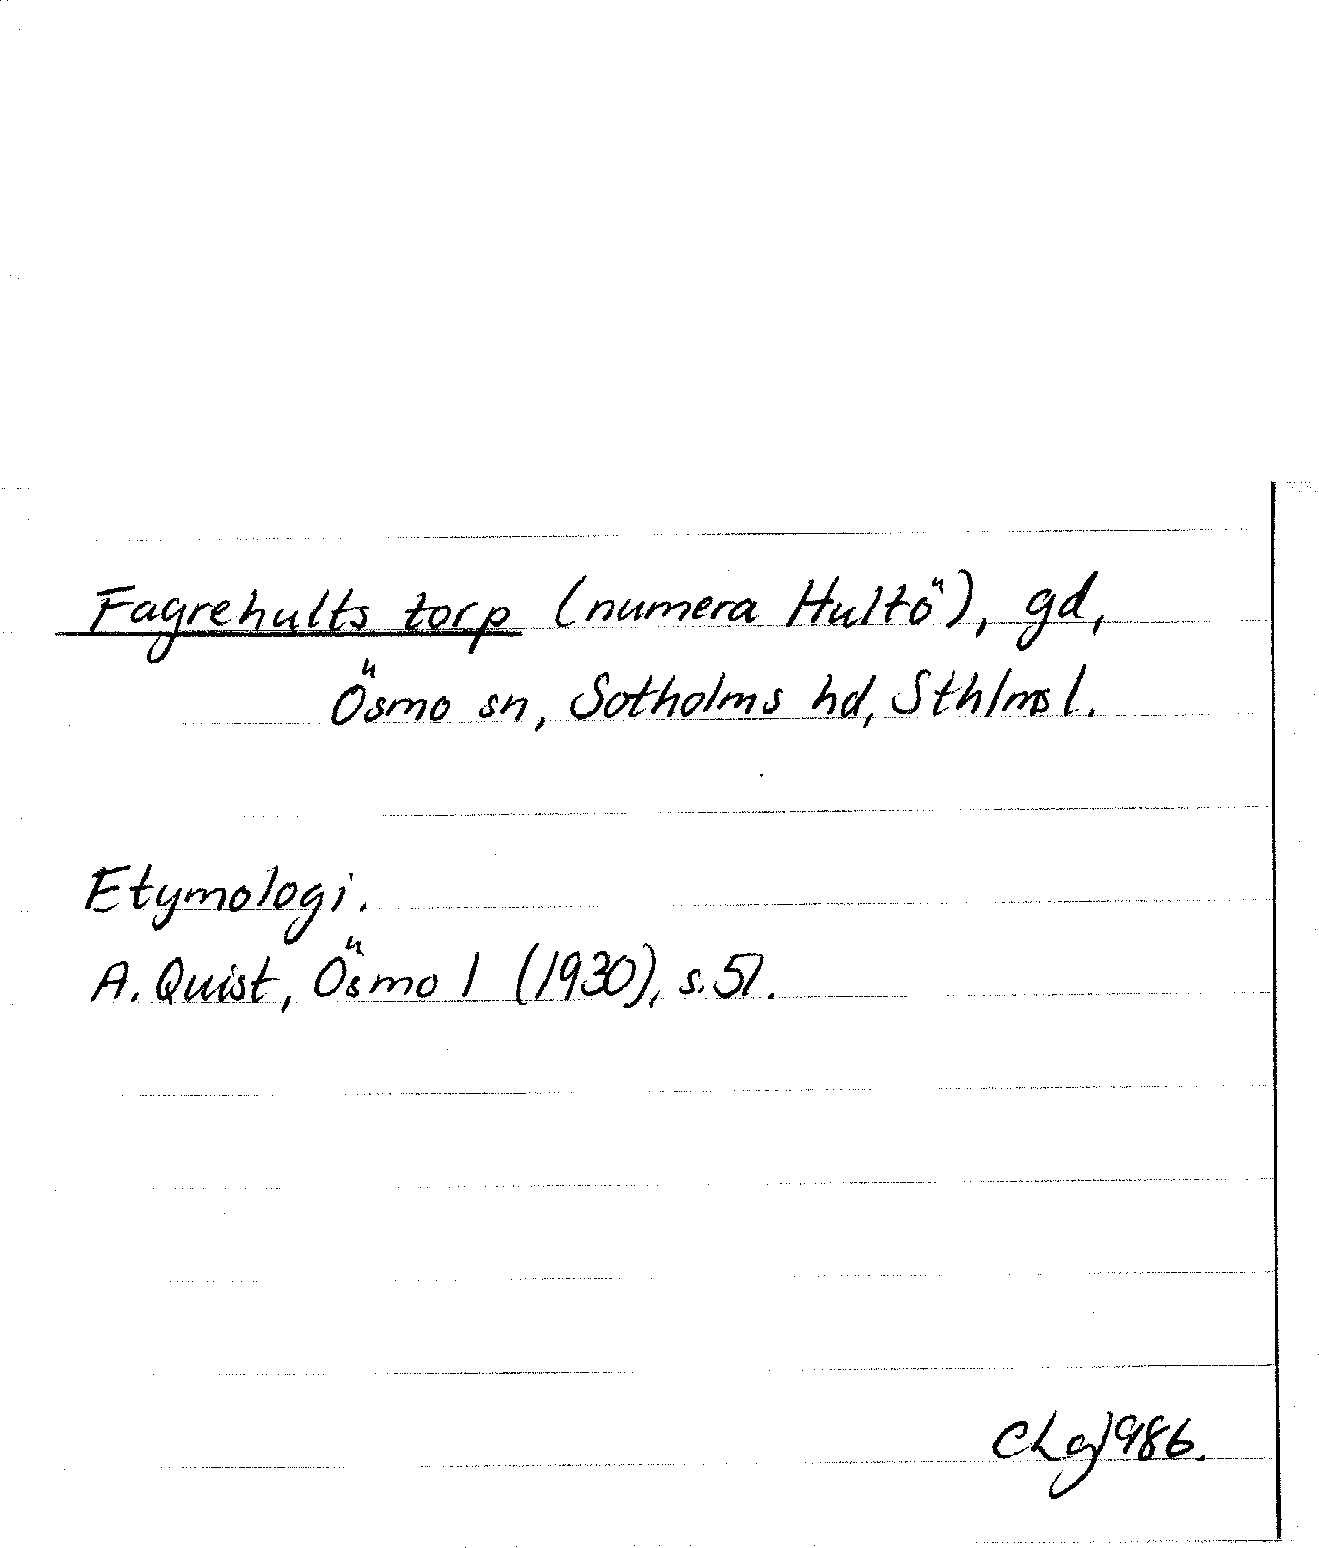 Fagrehults torp (numera Hultö), gd,
Ösmo sn, Sotholms hd, Sthlms l.
Etymologi.
A. Quist, Ösmo 1 (1930), s. 51.
CLg 1986.